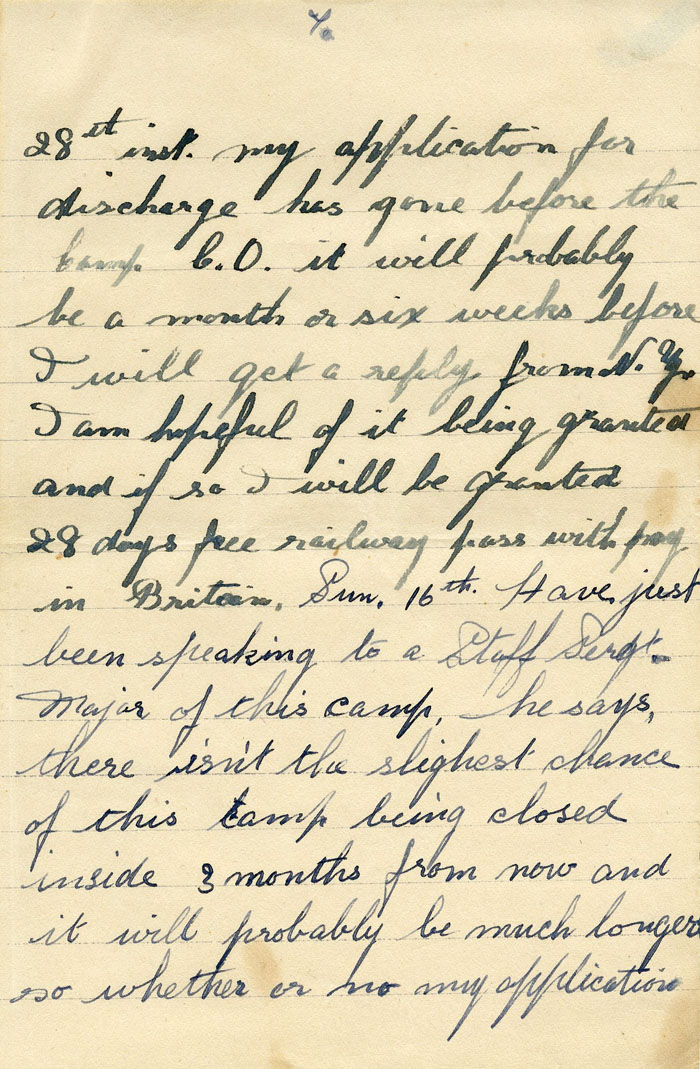 28th inst. my application for
discharge has gone before the
Camp. C.O. it will probably
be a month or six weeks before
I will get a reply from N.Z.
I am hopeful of it being granted
and if so I will be granted
28 days free railway pass with pay
in Britain. Sun. 16th. Have just
been speaking to a Staff Sergt.
Major of this camp, he says,
there isn't the slighest chance
of this camp being closed
inside 3 months from now and
it will probably be much longer
so whether or no my application